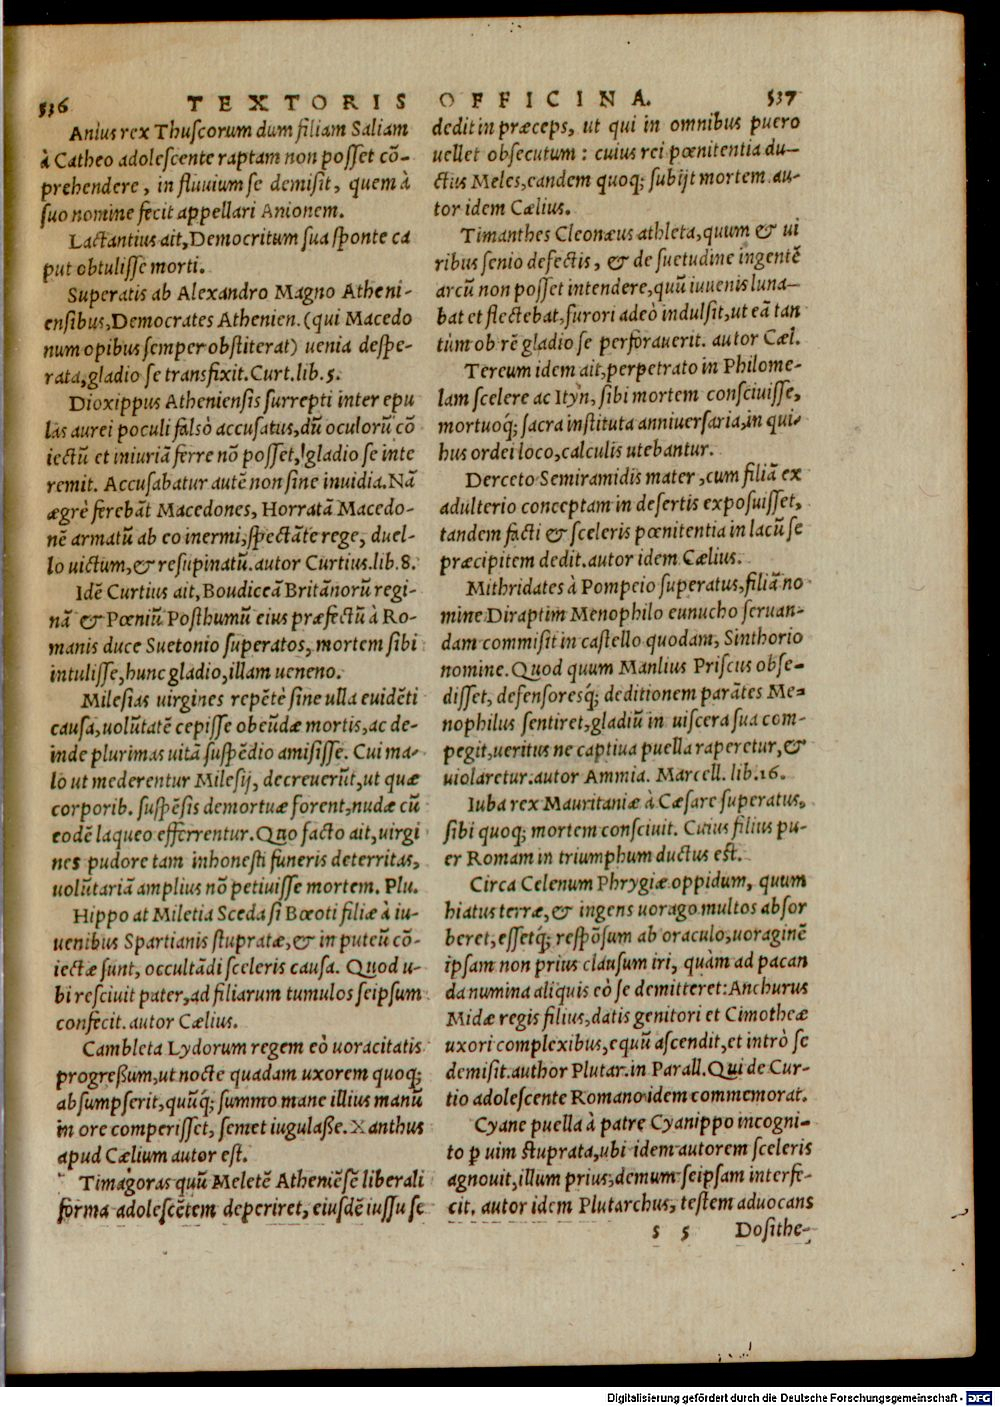 536 TEXTORIS OFFICINA. 537
Anius rex Thuscorum dum filiam Saliam
à Catheo adolescente raptam non posset cõ-
prehendere, in fluuium se demisit, quem à
suo nomine fecit appellari Anionem.
Lactantius ait, Democritum sua sponte ca
put obtulisse morti.
Superatis ab Alexandro Magno Atheni-
ensibus, Democrates Athenien. (qui Macedo
num opibus semper obstiterat) uenia despe-
rata, gladio se transfixit. Curt. lib. 5.
Dioxippus Atheniensis surrepti inter epu
las aurei poculi falsò accusatus, dũ oculorũ cõ
iectũ et iniuriã ferre nõ posset, gladio se inte
remit. Accusabatur autẽ non sine inuidia. Nã
ægrè ferebãt Macedones, Horratã Macedo-
nẽ armatũ ab eo inermi, spectãte rege, duel-
lo uictum, & resupinatũ. autor Curtius. lib. 8.
Idẽ Curtius ait, Boudiceã Britãnorũ regi-
nã & Pœniũ Posthumũ eius præfectũ à Ro-
manis duce Suetonio superatos, mortem sibi
intulisse, hunc gladio, illam ueneno.
Milesias uirgines repẽtè sine ulla euidẽti
causa, uolũtatẽ cepisse obeũdæ mortis, ac de-
inde plurimas uitã suspẽdio amisisse. Cui ma-
lo ut mederentur Milesij, decreuerũt, ut quæ
corporib. suspẽsis demortuæ forent, nudæ cũ
eodẽ laqueo efferrentur. Quo facto ait, uirgi
nes pudore tam inhonesti funeris deterritas,
uolũtariã amplius nõ petiuisse mortem. Plu.
Hippo at Miletia Sceda si Bœoti filiæ à iu-
uenibus Spartianis stupratæ, & in puteũ cõ-
iectæ sunt, occultãdi sceleris causa. Quod u-
bi resciuit pater, ad filiarum tumulos seipsum
confecit. autor Cælius.
Cambleta Lydorum regem eò uoracitatis
progreßum, ut nocte quadam uxorem quoq;
absumpserit, quũq́; summo mane illius manũ
in ore comperisset, semet iugulaße. Xanthus
apud Cælium autor est.
Timagoras quũ Meletẽ Atheniẽsẽ liberali
forma adolescẽtem deperiret, eiusdẽ iussu se
dedit in præceps, ut qui in omnibus puero
uellet obsecutum: cuius rei pœnitentia du-
ctus Meles, eandem quoq; subijt mortem. au-
tor idem Cælius.
Timanthes Cleonæus athleta, quum & ui
ribus senio defectis, & desuetudine ingentẽ
arcũ non posset intendere, quũ iuuenis luna-
bat et flectebat, furori adeò indulsit, ut eã tan
tùm ob rẽ gladio se perforauerit. autor Cæl.
Tereum idem ait, perpetrato in Philome-
lam scelere ac Itỳn, sibi mortem consciuisse,
mortuoq́; sacra instituta anniuersaria, in qui-
bus ordei loco, calculis utebantur.
Derceto Semiramidis mater, cum filiã ex
adulterio conceptam in desertis exposuisset,
tandem facti & sceleris pœnitentia in lacũ se
præcipitem dedit. autor idem Cælius.
Mithridates à Pompeio superatus, filiã no
mine Diraptim Menophilo eunucho seruan-
dam commisit in castello quodam, Sinthorio
nomine. Quod quum Manlius Priscus obse-
disset, defensoresq́; deditionem parãtes Me-
nophilus sentiret, gladiũ in uiscera sua com-
pegit, ueritus ne captiua puella raperetur, &
uiolaretur. autor Ammia. Marcell. lib. 16.
Iuba rex Mauritaniæ à Cæsare superatus,
sibi quoq; mortem consciuit. Cuius filius pu-
er Romam in triumphum ductus est.
Circa Celenum Phrygiæ oppidum, quum
hiatus terræ, & ingens uorago multos absor
beret, essetq́; respõsum ab oraculo, uoraginẽ
ipsam non prius clausum iri, quàm ad pacan
da numina aliquis eò se demitteret: Anchurus
Midæ regis filius, datis genitori et Cimotheæ
uxori complexibus, equũ ascendit, et intrò se
demisit. author Plutar. in Parall. Qui de Cur-
tio adolescente Romano idem commemorat.
Cyane puella à patre Cyanippo incogni-
to p uim stuprata, ubi idem autorem sceleris
agnouit, illum prius, demum seipsam interfe-
cit. autor idem Plutarchus, testem aduocans
s 5 Dosithe-
Digitalisierung gefördert durch die Deutsche Forschungsgemeinschaft - DFG